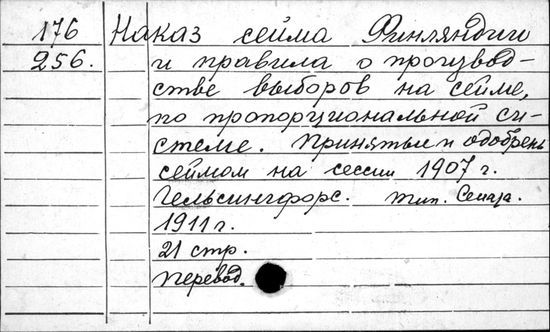 176 Наказ сейма Финляндии
256. и правила о производ-
стве выборов на сейме,
по пропорциональной си-
стеме. Приняты и одобрены
сеймом на сессии 1907 г.
Гельсингфорс. Тип. Сената.
1911 г.
21 стр.
Перевод.